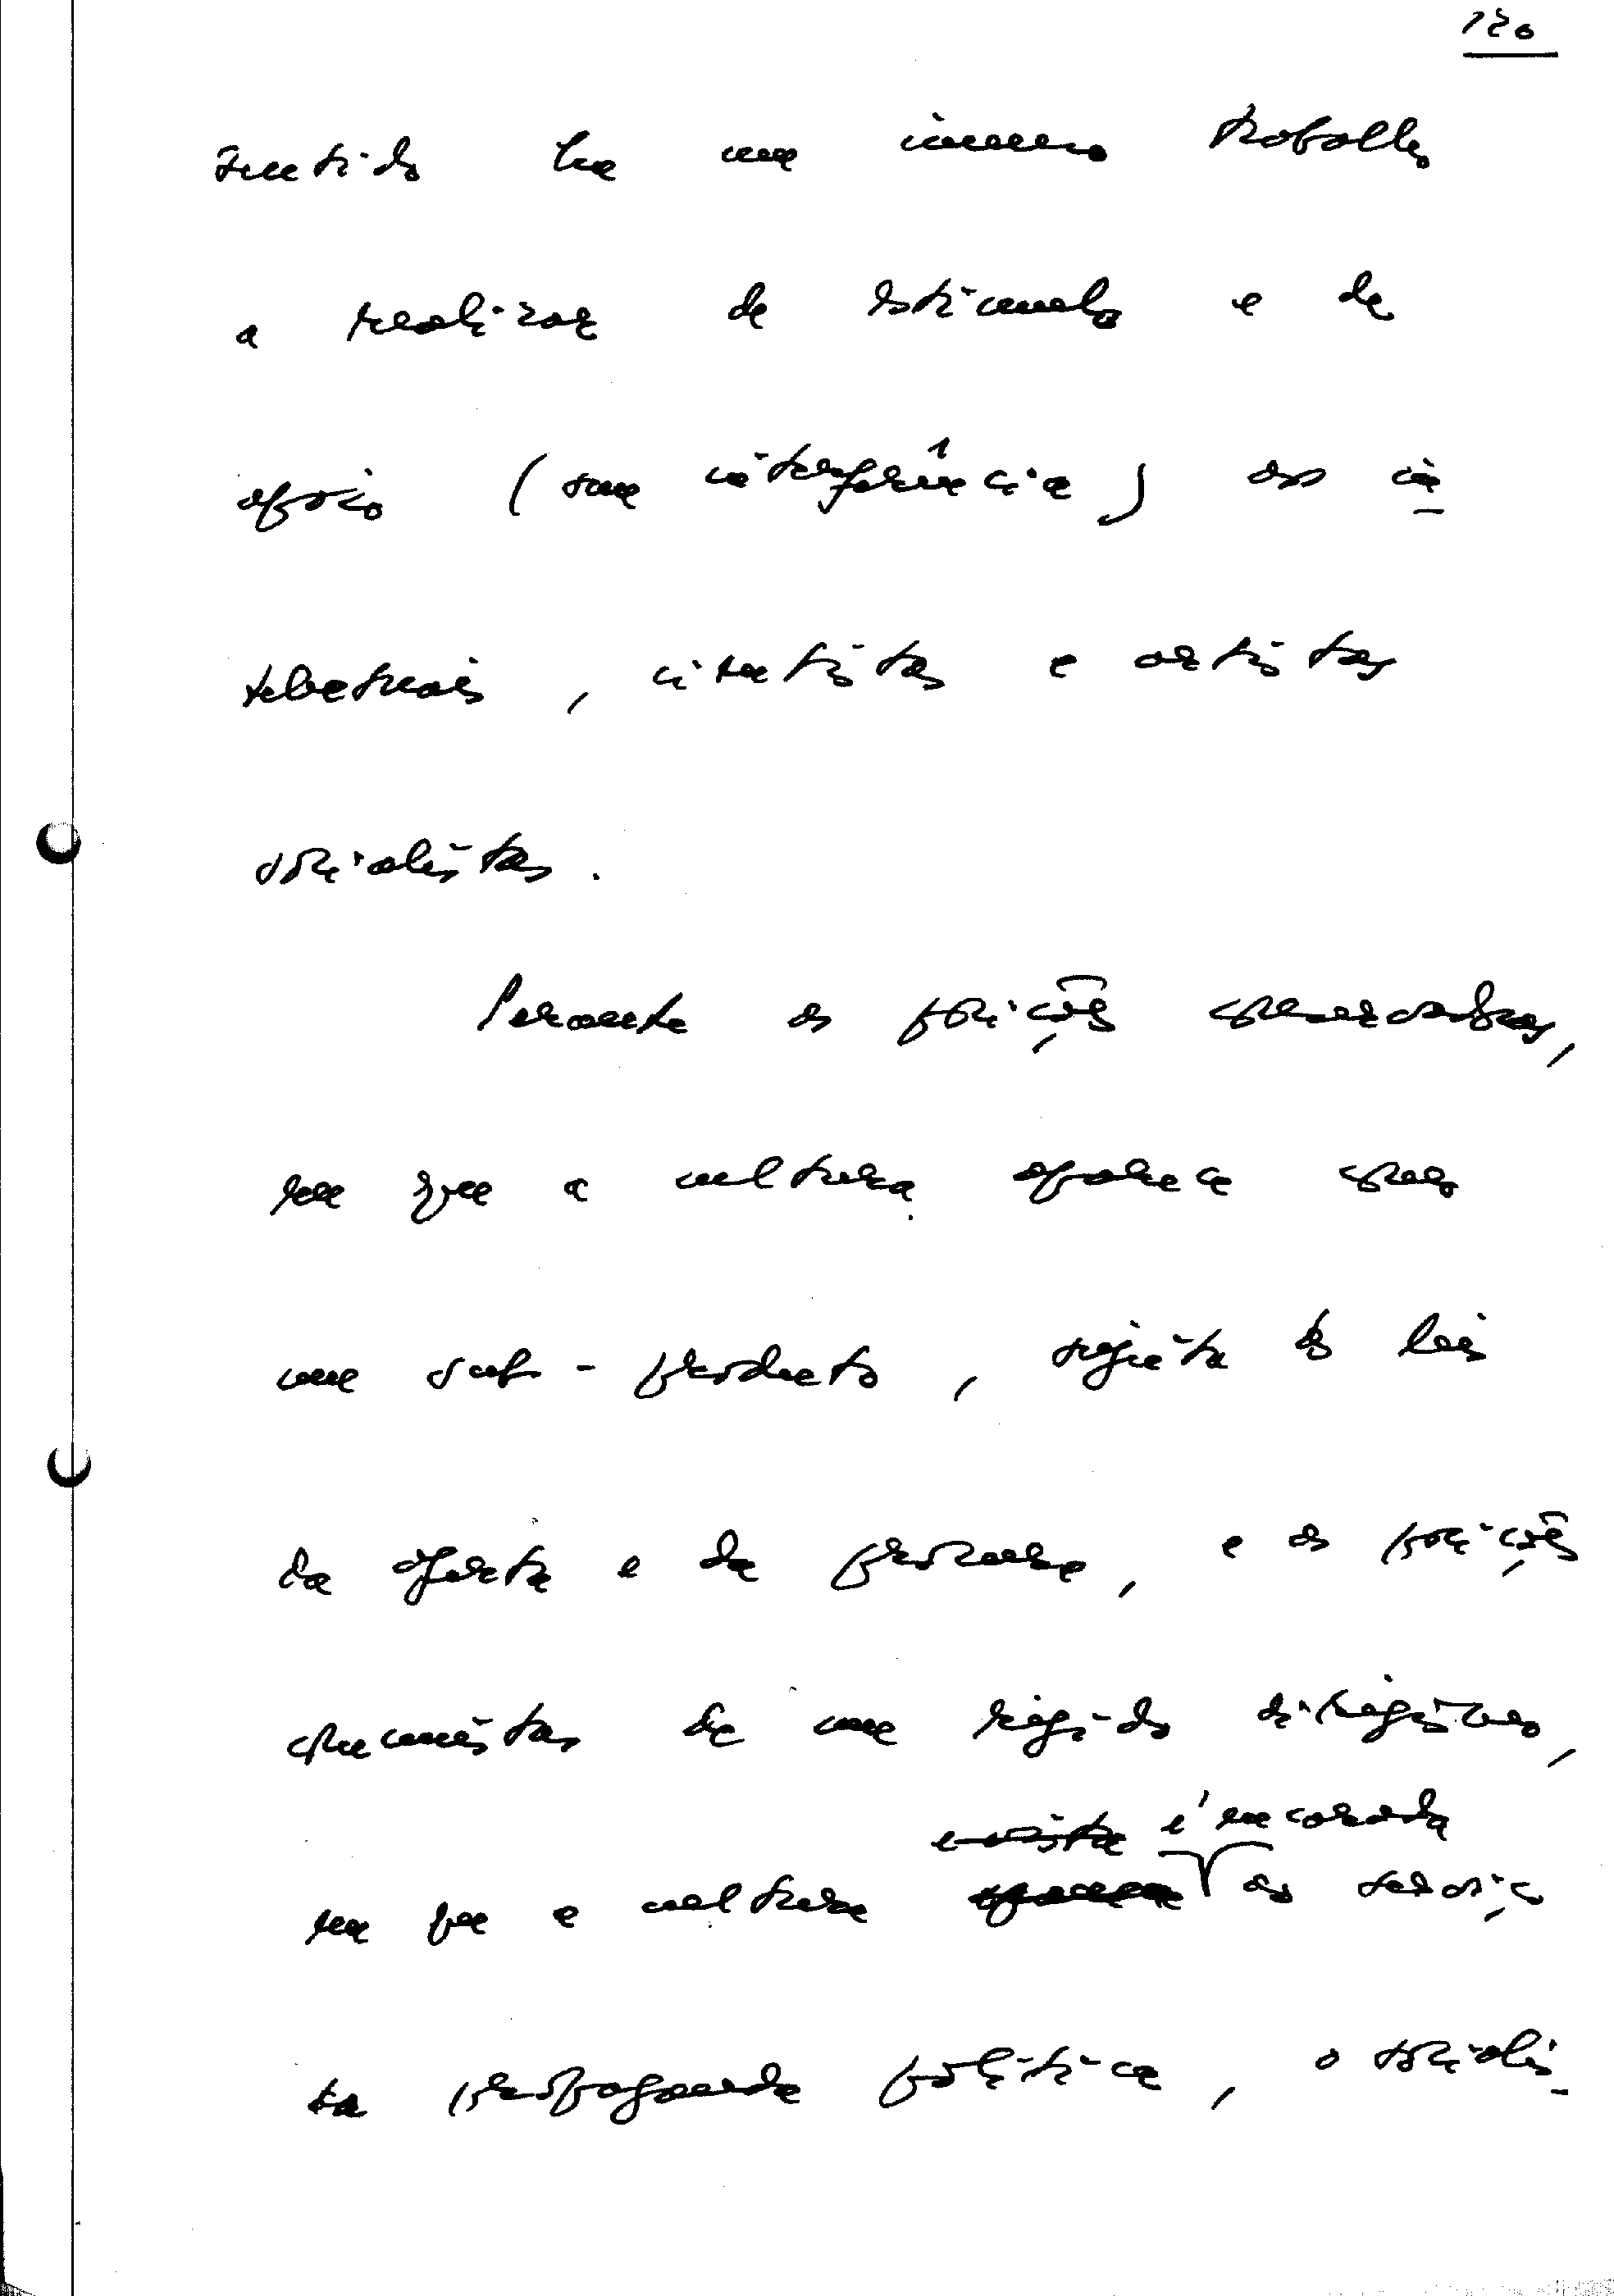 120
sentido há um imenso trabalho
a realizar de estímulo e de
apoio (sem interferência) aos in
telectuais, cientistas e artistas
socialistas.
Perante as posições conservadoras,
em que a cultura aparece como
um sub-producto, sujeita às leis
da oferta e da procura, e as posições
comunistas de um rígido dirigismo,
é encarada
em que a cultura ao serviço
da propaganda política, o sociali-